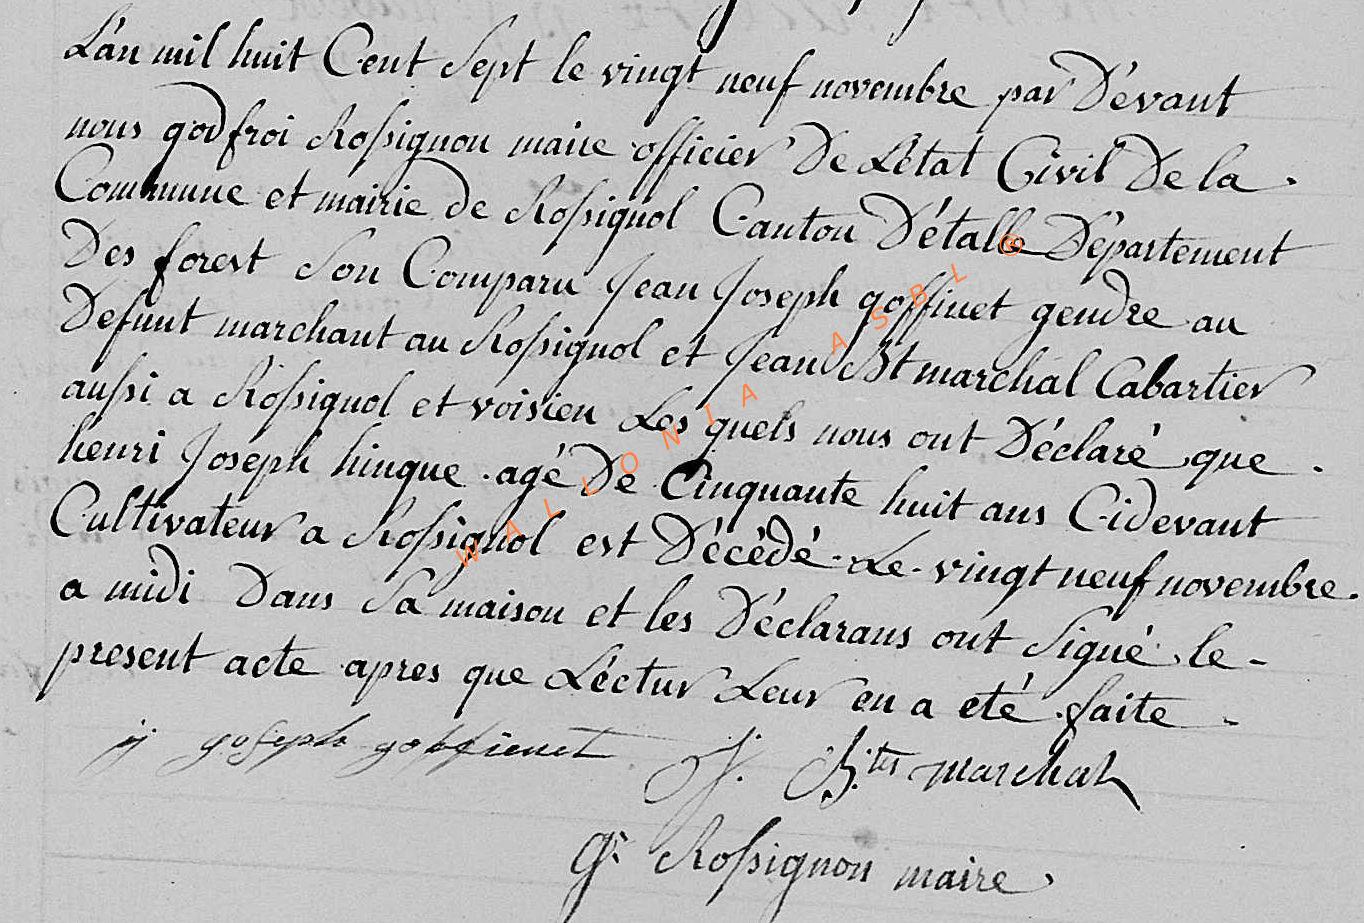 L'an mil huit Cent Sept le vingt neuf novembre par Dévant
nous godfroi Rossignon maire officier De L'état Civil De la
Commune et mairie de Rossignol Canton D'étalle Département
Des forest Son Comparu Jean Joseph goffinet gendre au
Defunt marchant au Rossignol et Jean Bt marchal Cabartier
aussi a Rossignol et voisien Les quels nous ont Déclaré que
henri Joseph hinque agé De Cinquante huit ans Cidevant
Cultivateur a Rossignol est Décédé Le vingt neuf novembre.
a midi Dans Sa maison et les Déclarans ont Signé le
present acte apres que Léctur Leur en a eté faite
j joseph goffienet J. B.te marchal
G. Rossignon maire
WALLONIA ASBL ©